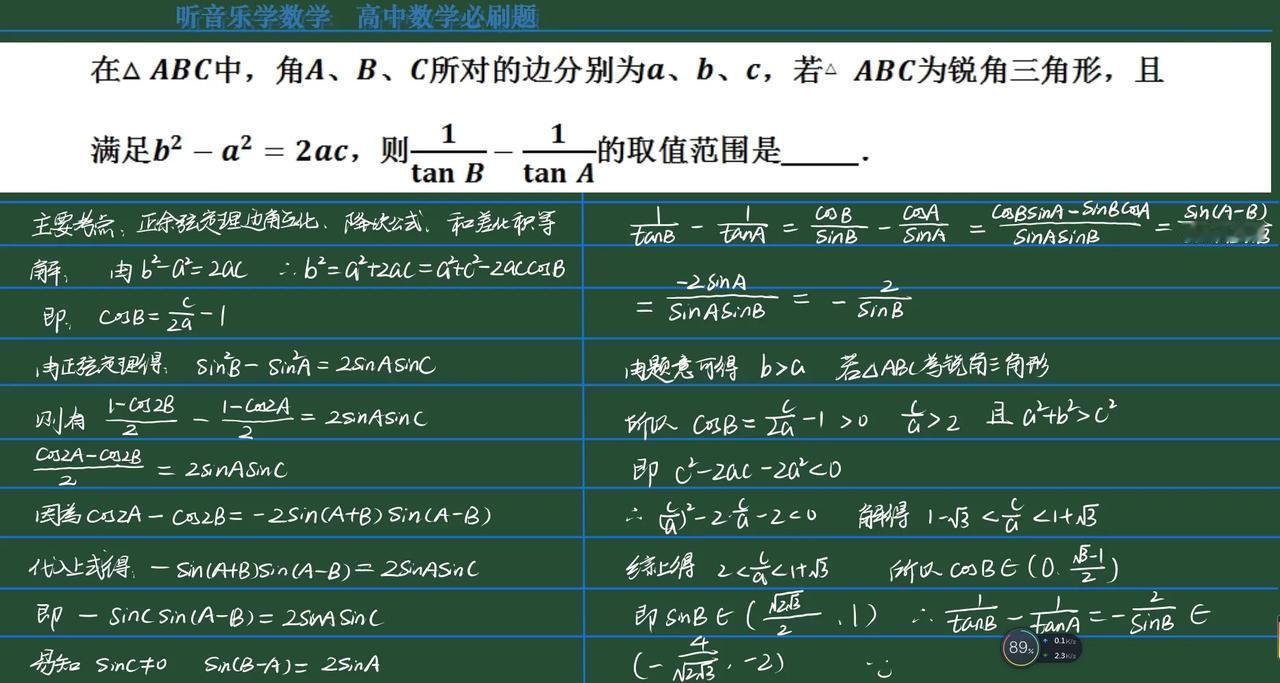 听音乐学数学 高中数学必刷题
在△ ABC中，角A、B、C所对的边分别为a、b、c，若△ ABC为锐角三角形，且
满足b² − a² = 2ac，则1/tan B − 1/tan A的取值范围是_____.
主要考点：正余弦定理边角互化、降次公式、和差化积等
解： 由b²-a²=2ac ∴b²=a²+2ac=a²+c²-2accosB
即： cosB=c/2a-1
由正弦定理得： sin²B-sin²A=2sinAsinC
则有 (1-cos2B)/2 - (1-cos2A)/2 = 2sinAsinC
(cos2A-cos2B)/2 = 2sinAsinC
因为cos2A-cos2B=-2sin(A+B)sin(A-B)
代入上式得：-sin(A+B)sin(A-B)=2sinAsinC
即 -sinCsin(A-B)=2sinAsinC
易知 sinC≠0 sin(B-A)=2sinA
1/tanB - 1/tanA = cosB/sinB - cosA/sinA = (cosBsinA-sinBcosA)/sinAsinB = sin(A-B)
= -2sinA/sinAsinB = -2/sinB
由题意可得 b>a 若△ABC为锐角三角形
所以 cosB=c/2a-1>0 c/a>2 且 a²+b²>c²
即 c²-2ac-2a²<0
∴(c/a)²-2·c/a-2<0 解得 1-√3<c/a<1+√3
综上得 2<c/a<1+√3 所以 cosB∈(0,(√3-1)/2)
即 sinB∈(√2√3/2,1) ∴1/tanB-1/tanA=-2/sinB∈
(-4/√2√3,-2)
89%
0.1K/s
2.3K/s